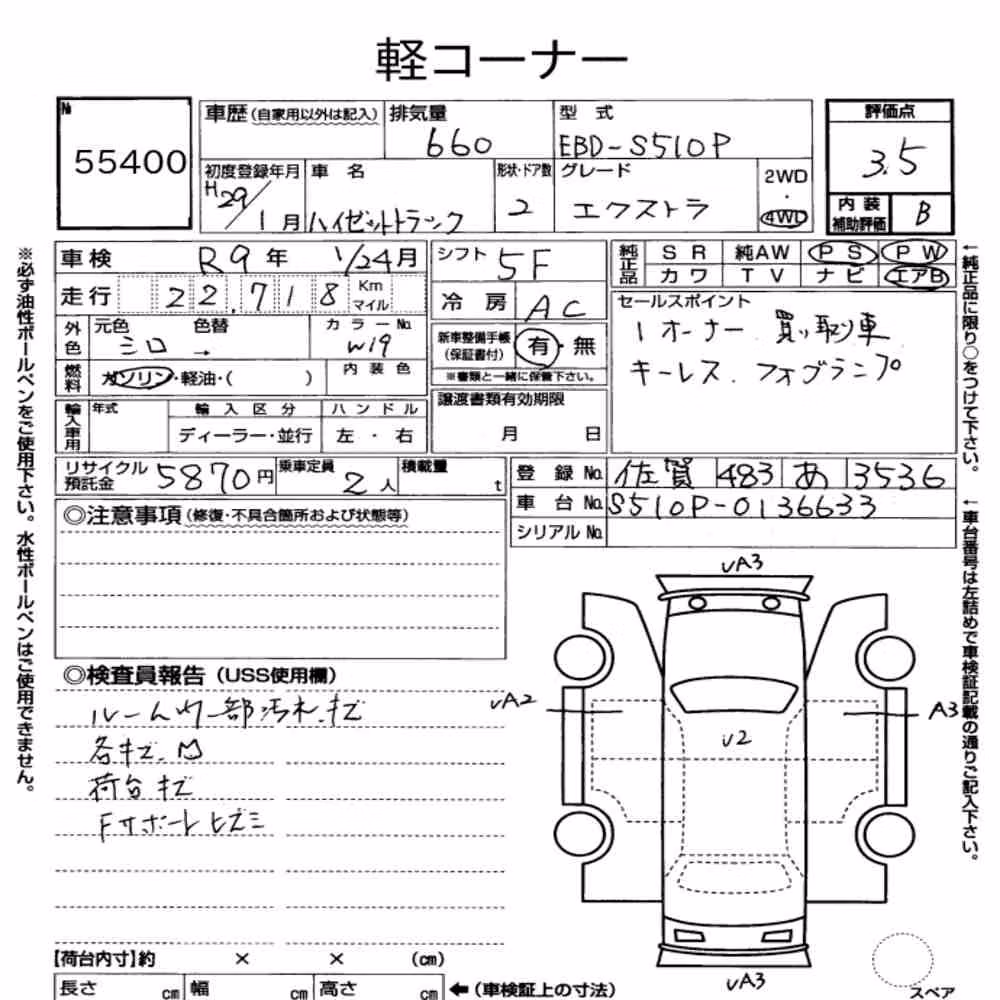 軽コーナー
№ 55400
車歴(自家用以外は記入) 排気量 660 型式 EBD-S510P
初度登録年月 H29/1月 車名 ハイゼットトラック 形状・ドア数 2 グレード エクストラ 2WD・4WD
評価点 3.5
内装補助評価 B
車検 R9年 1/24月
走行 22,718 Km マイル
外色 元色 シロ 色替 → カラーNo. W19
燃料 ガソリン・軽油・( ) 内装色
輸入車用 年式 輸入区分 ディーラー・並行 ハンドル 左・右
シフト 5F
冷房 AC
新車整備手帳(保証書付) 有・無
※書類と一緒に保管下さい。
譲渡書類有効期限
月 日
純正品 SR 純AW PS PW
カワ TV ナビ エアB
セールスポイント
1オーナー 買い取り車
キーレス. フォグランプ
リサイクル預託金 5870円 乗車定員 2人 積載量 t
登録No. 佐賀 483 あ 3536
車台No. S510P-0136633
シリアルNo.
◎注意事項(修復・不具合箇所および状態等)
◎検査員報告(USS使用欄)
ルーム内一部汚れ.キズ
各キズ.凹
荷台キズ
Fサポートヒズミ
【荷台内寸】約 × × (cm)
長さ cm 幅 cm 高さ cm ←(車検証上の寸法)
UA3
UA2
A3
U2
UA3
スペア
※必ず油性ボールペンをご使用下さい。水性ボールペンはご使用できません。
←純正品に限り○をつけて下さい。
←車台番号は左詰めで車検証記載の通りご記入下さい。